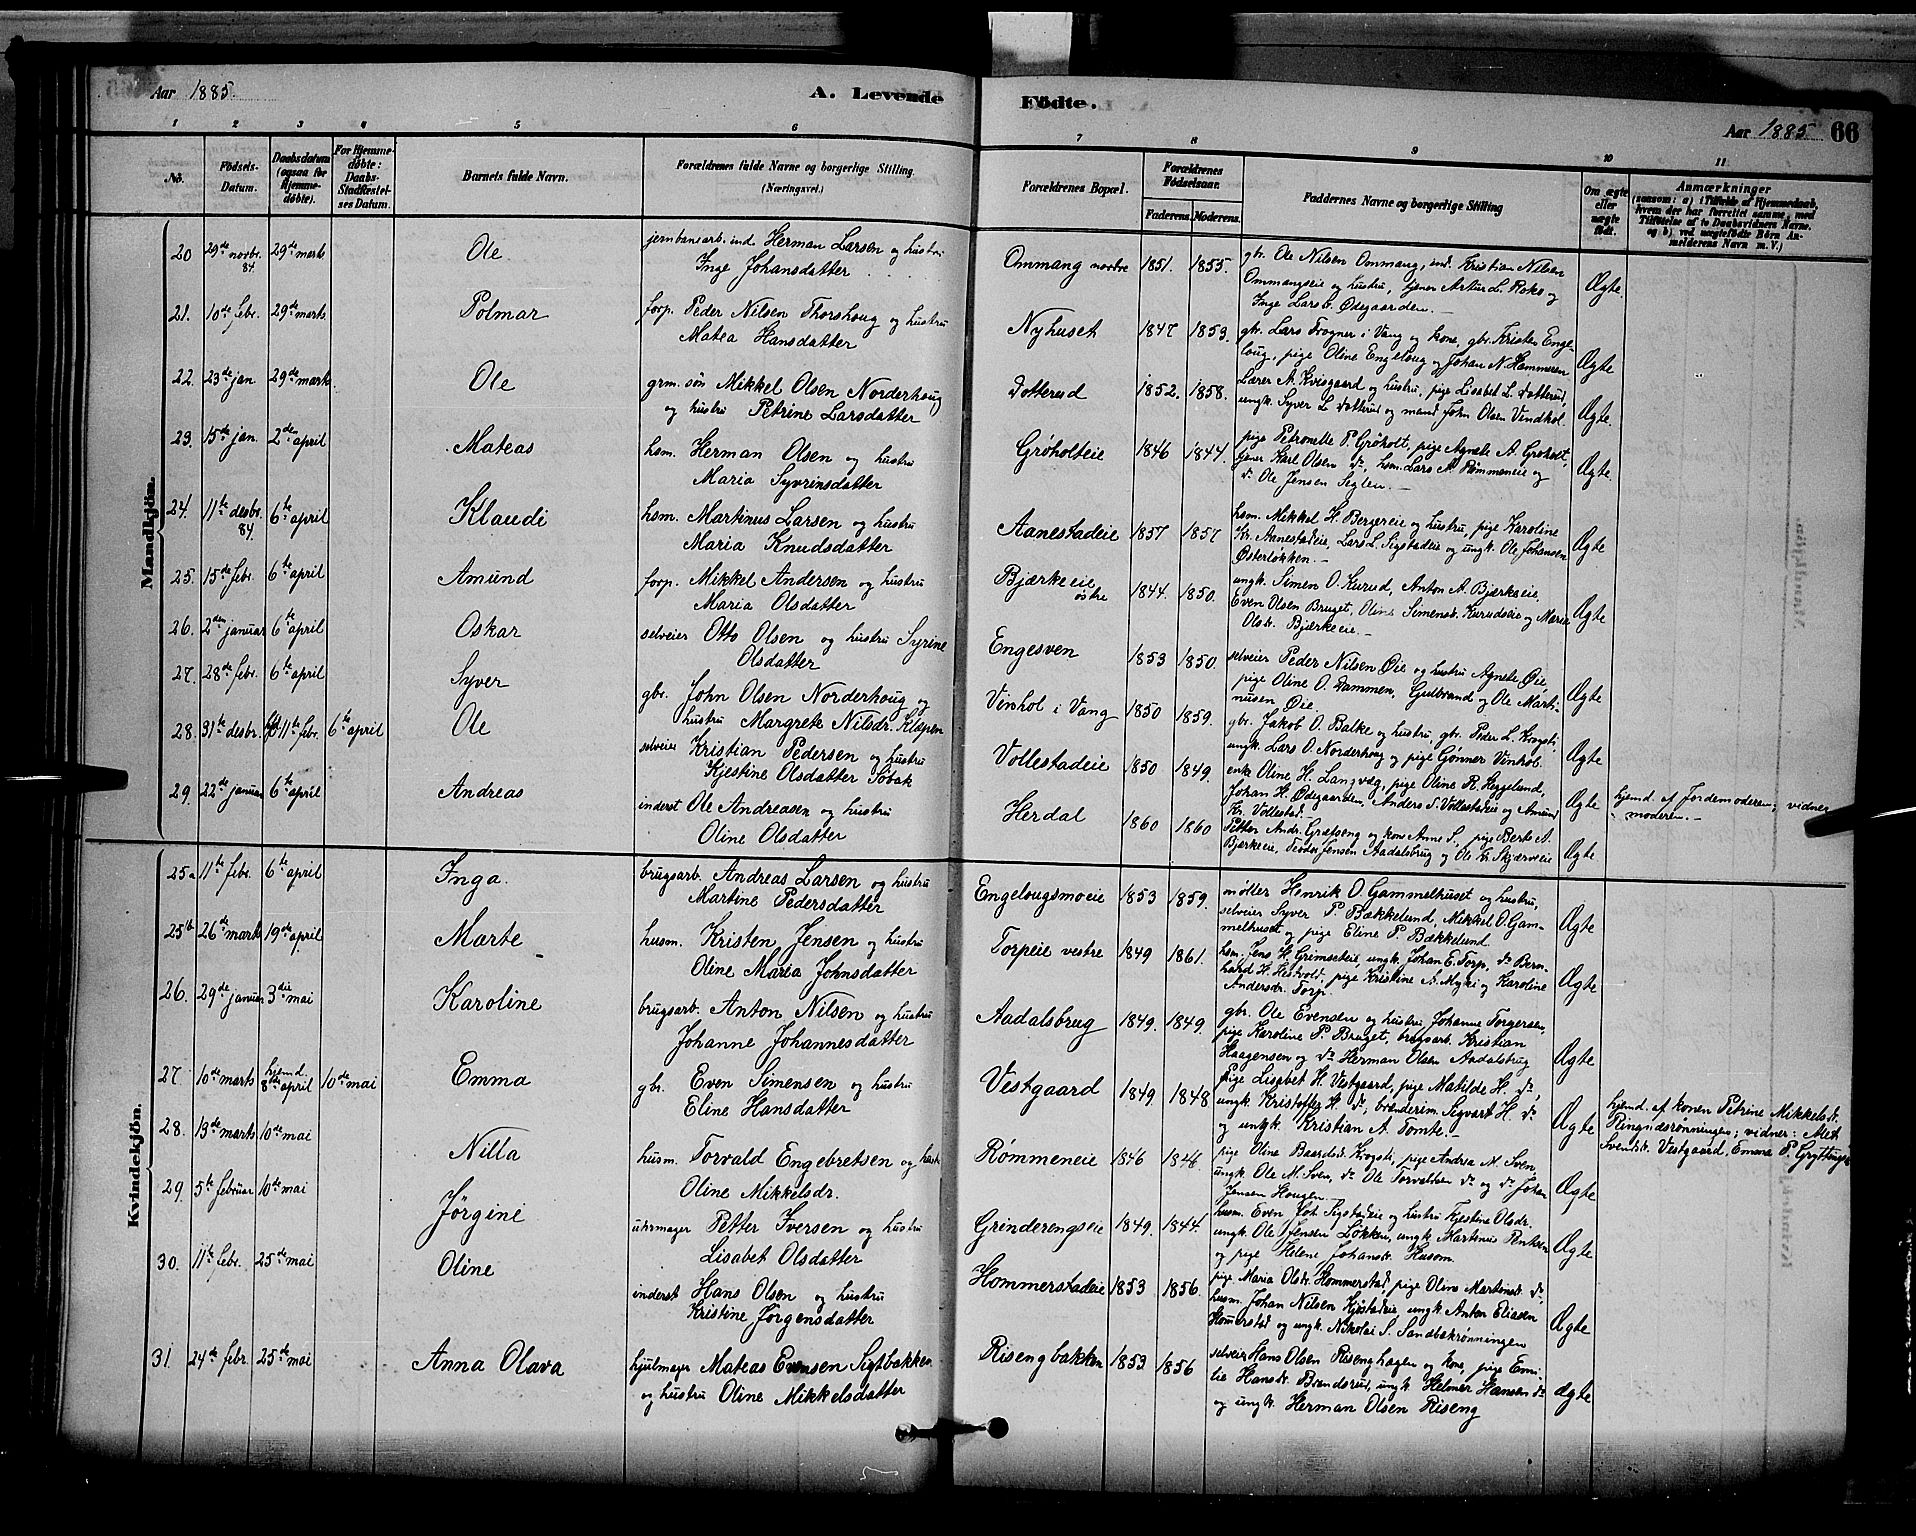 Aar 1885.
A. Levende
Fødte.
Aar 1885
66
1 2 3 4 5 6 7 8 9 10 11
No.
Fødsels-Datum.
Daabsdatum (ogsaa for Hjemmedøbte).
For Hjemmedøbte: Daabs-Stadfæstelses Datum.
Barnets fulde Navn.
Forældrenes fulde Navne og borgerlige Stilling.
(Næringsvei.)
Forældrenes Bopæl.
Forældrenes Fødselsaar.
Faderens. Moderens.
Faddernes Navne og borgerlige Stilling
Om ægte eller uægte født.
Anmærkninger
(saasom: a) i Tilfælde af Hjemmedaab, hvem der har forrettet samme, med Tilføielse af to Daabsvidners Navne, og b) ved uægtefødte Børn Anmelderens Navn m. V.)
Mandkjön.
20 29de novbr. 84. 29de marts Ole
jernbanearb. ind. Herman Larsen og hustru
Inge Johansdatter
Ommang nordre 1851. 1855.
gbr. Ole Nilsen Ommang, ind. Kristian Nilsen
Ommangseie og hustru, tjener Artur L. Roko og
Inge Larsd. Ødegaarden.
Ægte.
21. 10de febr. 29de marts Polmar
forp. Peder Nilsen Thorshoug og hustru
Matea Hansdatter
Nyhuset 1847 1853.
gbr. Lars Frogner i Vang og kone, gbr. Kristen Enge-
loug, pige Oline Engeloug og Johan N. Hammeren
Ægte
22. 23de jan 29de marts. Ole
grm. søn Mikkel Olsen Norderhoug
og hustru Petrine Larsdatter
Dotterud 1852. 1858.
Lærer A. Kvisgaard og hustru, pige Lisabet L. Dotterud,
ungk. Syver L. Dotterud og mand John Olsen Vendkol.
Ægte.
23. 15de jan. 2den april Mateas
hsm. Herman Olsen og hustru
Maria Syvrinsdatter
Grøholteie 1846 1844.
pige Petronelle P. Grøholt, pige Agnete A. Grøholt,
tjener Karl Olsen do, hsm. Lars A. Rømmeneie og
do Ole Jensen Seglen.
Ægte.
24. 11te desbr. 84. 6te april Klaudi
hsm. Martinus Larsen og hustru
Maria Knudsdatter
Aanestadeie 1857 1857
hsm. Mikkel H. Bergereie og hustru, pige Karoline
Kr. Aanestadeie, Lars L. Sigstadeie og ungk. Ole Johansen
Østerløkken.
Ægte.
25. 15de febr. 6te april Amund
forp. Mikkel Andersen og hustru
Maria Olsdatter
Bjærkeeie østre 1844. 1850.
ungk. Simen O. Kurud, Anton A. Bjærkeeie,
Even Olsen Bruget, Oline Simensd. Kurudseie og Marie
Olsdr. Bjærkeeie.
Ægte
26. 2den januar 6te april Oskar
selveier Otto Olsen og hustru Syrine
Olsdatter
Engesven 1853 1850.
selveier Peder Nilsen Øie og hustru Agnete Øie,
pige Oline O. Dammen, Gulbrand og Ole Marti-
nusen Øie.
Ægte
27. 28de febr. 6te april Syver
gbr. John Olsen Norderhoug og
hustru Margrete Nilsdr. Klæpen
Vinhol i Vang 1850 1859.
gbr. Jakob O. Balke og hustru, gbr. Peder L. Krogsti,
ungk. Lars O. Norderhoug og pige Gønner Vinhol
Ægte
28. 31te desbr. 11te febr. 6te april Ole
selveier Kristian Pedersen og hustru
Kjestine Olsdatter Søbak
Vollestadeie 1850 1849.
enke Oline H. Langvæg, pige Oline R. Heggelund,
Johan H. Ødegaarden, Anders S. Vollestadeie og Amund
Kr. Vollestad.
Ægte
hjemd. af Jordemoderen; vidner:
moderen.
29. 22de januar 6te april Andreas
inderst Ole Andreasen og hustru
Oline Olsdatter
Herdal 1860 1860
Petter Andr. Græfseng og kone Anne S., pige Berte A.
Bjærkeeie, Teodor Jensen Aadalsbrug og Ole Kr. Skjærveie
Ægte
Kvindekjön.
25a 11te febr. 6te april Inga.
brugsarb. Andreas Larsen og hustru
Martine Pedersdatter
Engelougsmoeie 1853 1859.
møller Henrik O. Gammelhuset og hustru,
selveier Syver P. Bækkelund, Mikkel O. Gam-
melhuset og pige Eline P. Bækkelund
Ægte
25b 26de marts 19de april Marte
husm. Kristen Jensen og hustru
Oline Maria Johnsdatter
Torpeie vestre 1849 1861.
hsm. Jens H. Grimseteie, ungk. Johan E. Torp, do Bern-
hard H. Hestvold, pige Kristine A. Myki og Karoline
Andersdr. Torp.
Ægte
26. 29de januar 3die mai Karoline
brugsarb. Anton Nilsen og hustru
Johanne Johannesdatter
Aadalsbrug 1849. 1849.
gbr. Ole Evensen og hustru Johanne Torgersen,
pige Karoline P. Bruget, brugsarb. Kristian
Haagensen og do Herman Olsen Aadalsbrug
Ægte
27. 10de marts hjemd. 8de april 10de mai Emma
gbr. Even Simensen og hustru
Eline Hansdatter
Vestgaard 1849. 1848
pige Lisabet H. Vestgaard, pige Matilde H. do,
ungk. Kristoffer H. do, brænderim. Sigvart H. do
og ungk. Kristian A. Tomte.
Ægte
hjemd. af konen Petrine Mikkelsdr.
Ringsiderønningen; vidner: Alet
Svendsk. Vestgaard, Emma P. Gryttings
28. 13de marts 10de mai Nilla
husm. Torvald Engebretsen og hustru
Oline Mikkelsdr.
Rømmeneie 1846 1846
pige Olina Baardsd. Krogsti, pige Andrea M. Sven,
ungk. Ole M. Sven, do Ole Torvaldsen do og do Johan
Jensen Hougen.
Ægte
29. 5te februar 10de mai Jørgine
uhrmager Petter Iversen og hustru
Lisabet Olsdatter
Grinderengseie 1849. 1844.
husm. Even Joh. Sigstadeie og hustru Kjestine Olsdr.
ungk. Ole Jensen Løkken, ungk. Martinus Bentsen
og pige Helene Johansdr. Husom
Ægte
30. 11te febr. 25de mai Oline
inderst Hans Olsen og hustru
Kristine Jørgensdatter
Hommerstadeie 1853 1856.
pige Maria Olsdr. Hommerstad, pige Oline Martinsd. do,
husm. Johan Nilsen Kjøstadeie, ungk. Anton Eliasen
Homerstad og ungk. Nikolai S. Sandbakrønningen
Ægte
31 24de febr. 25de mai Anna Olava
hjulmager Mateas Evensen Sigtbakken
og hustru Oline Mikkelsdatter
Risengbakken 1853 1856
selveier Hans Olsen Risenghagen og kone, pige Emi-
lie Hansdr. Brændsrud, ungk. Helmer Hansen do
og ungk. Herman Olsen Riseng
Ægte